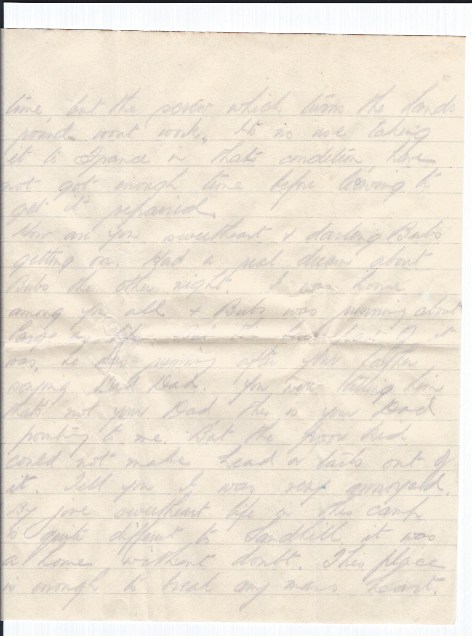 time but the screw which turns the hands
round wont work. Its no use taking
it to France in that condition have
not got enough time before leaving to
get it repaired.
How are you sweetheart & darling Bubs
getting on. Had a dream about
Bubs the other night. I was home
among you all & Bubs was running about
large as life
was, he was running after your father
saying Dad Dad. You were telling him
thats not your Dad this is your Dad
pointing to me. But the poor kid
could not make head or tails out of
it. Tell you I was very annoyed.
By jove sweetheart life in this camp
is quite different to Sandhill it was
a home without doubt. This place
is enough to break any mans heart.